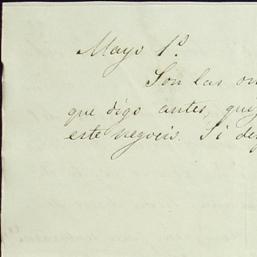 Mayo 1º.
Son las on
que digo antes, que
este negocio. Si de